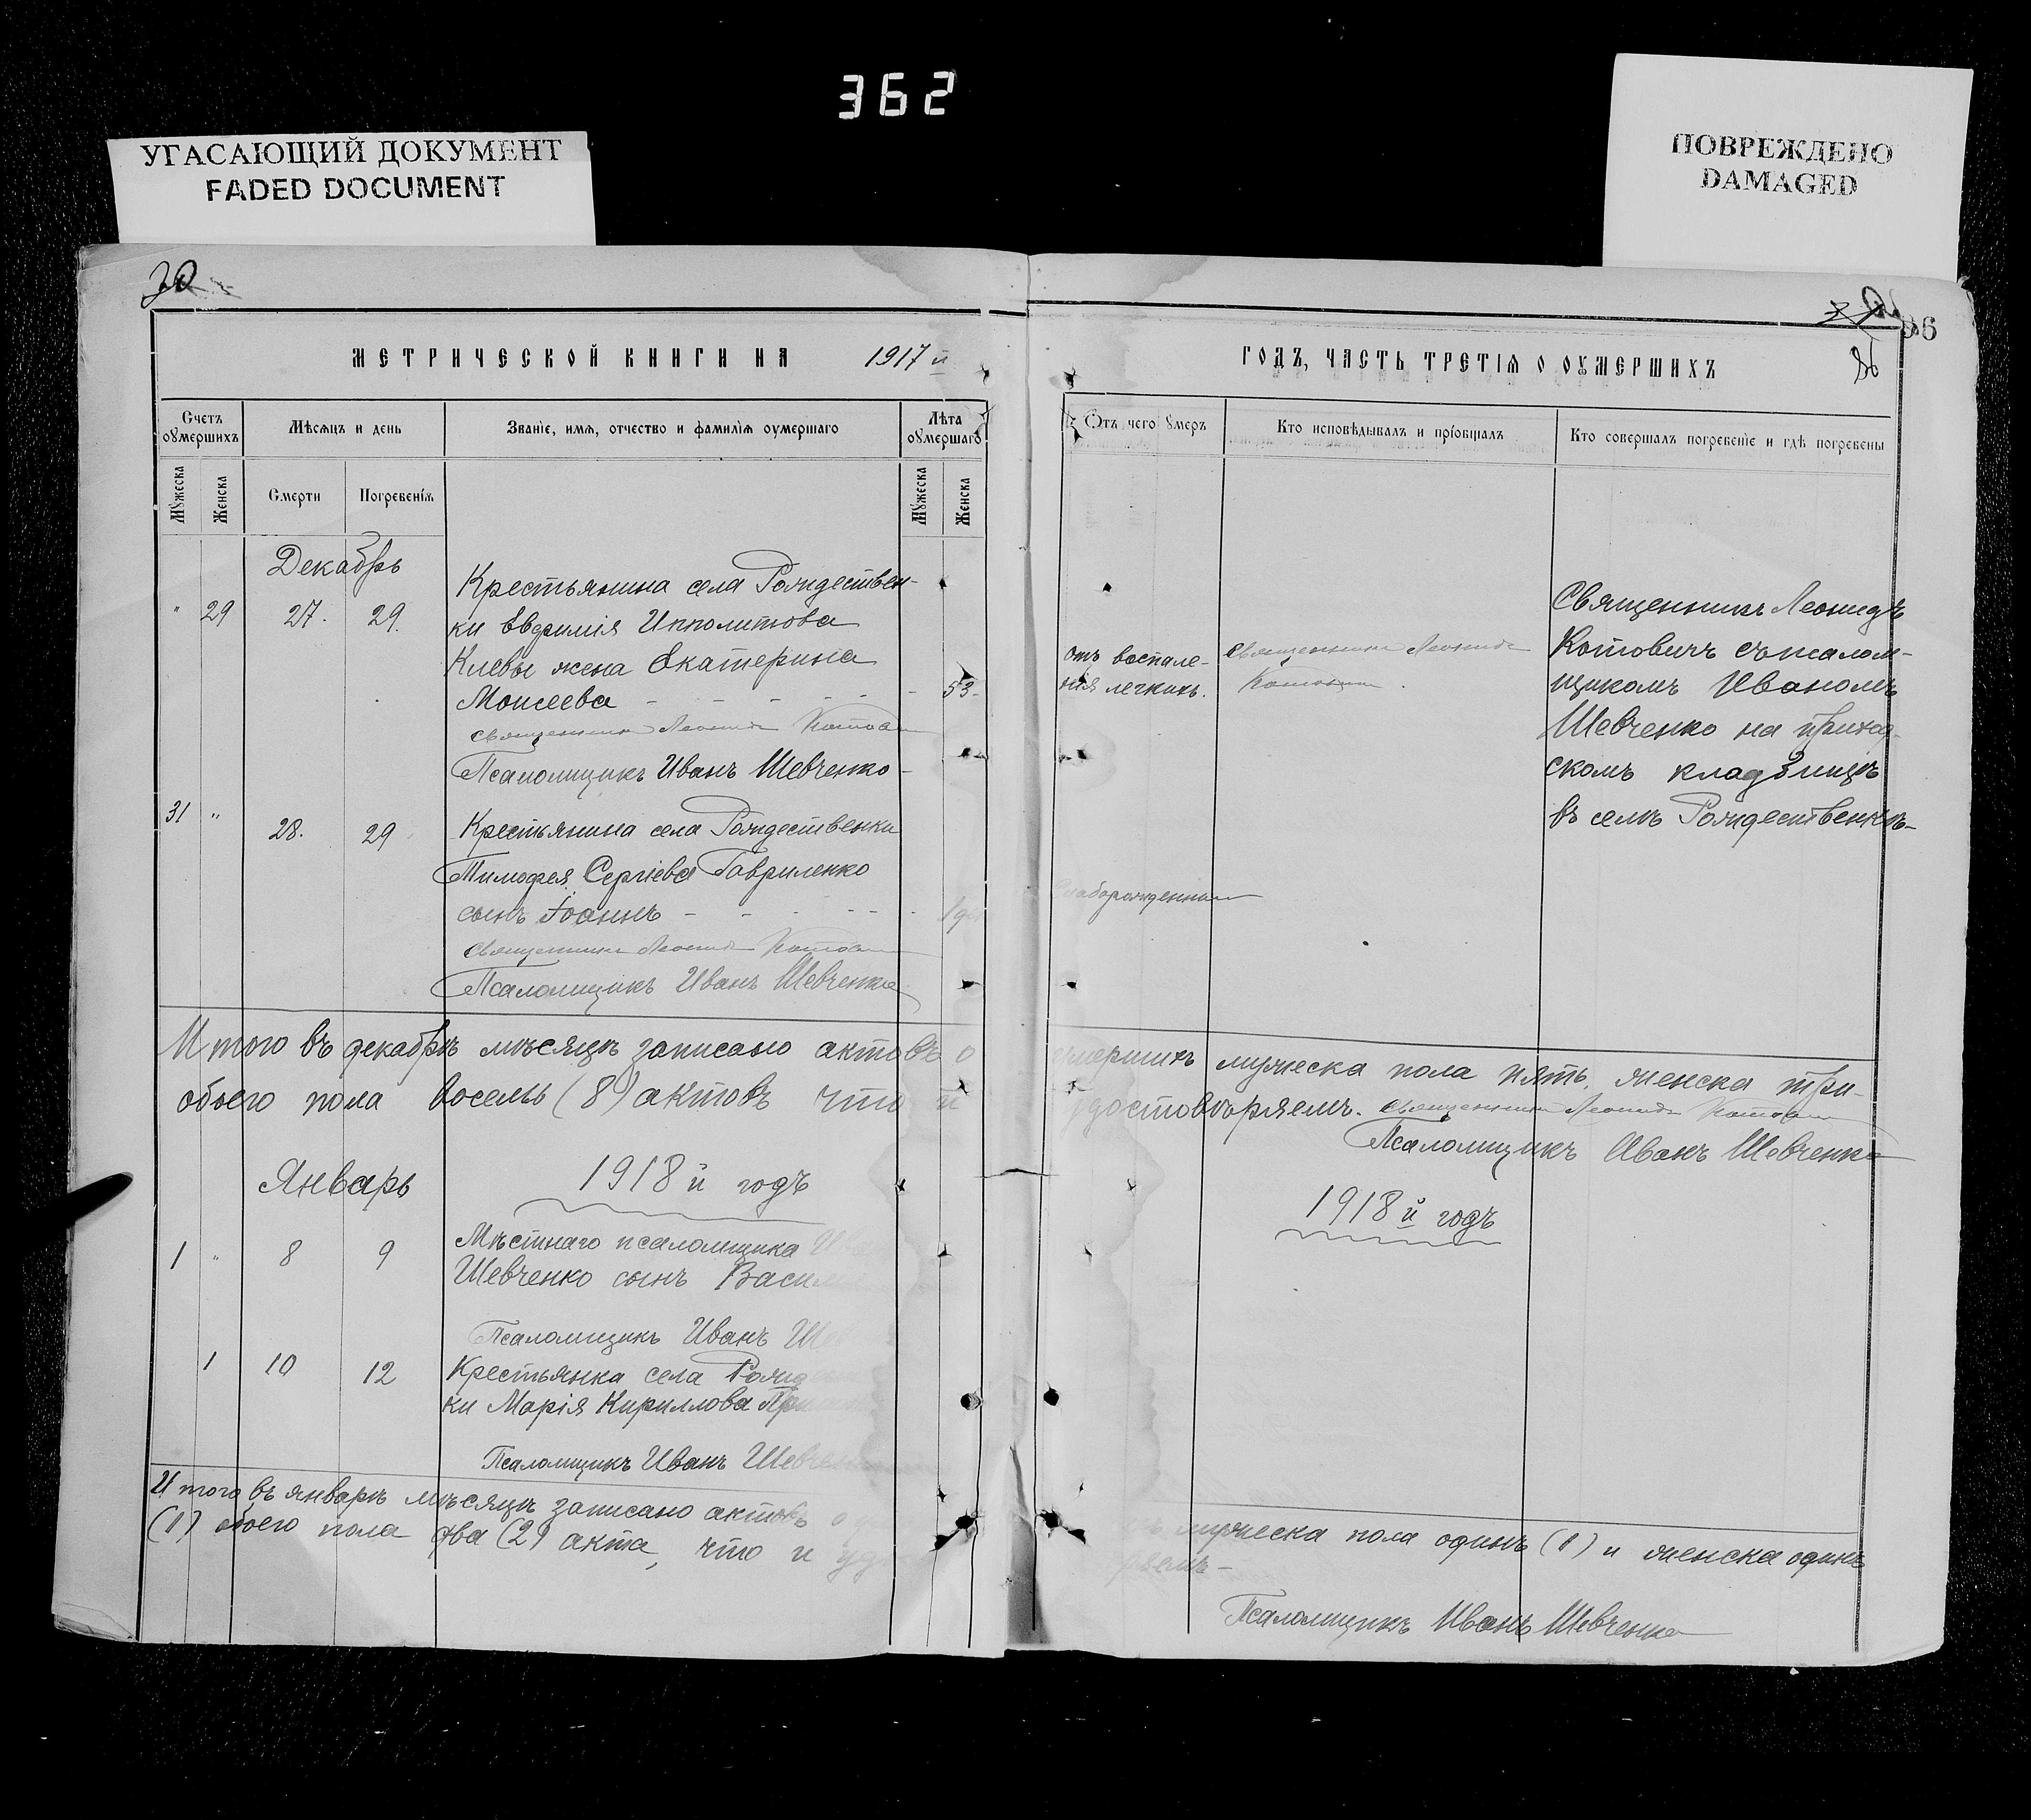 362
УГАСАЮЩИЙ ДОКУМЕНТ
FADED DOCUMENT
ПОВРЕЖДЕНО
DAMAGED
30
86
МЕТРИЧЕСКОЙ КНИГИ НА 1917 й
ГОДЪ, ЧАСТЬ ТРЕТІѦ О ОУМЕРШИХЪ
86
Счетъ оумершихъ
Мѣсѧцъ и день
Званіе, имѧ, отчество и фамиліѧ оумершаго
Лѣта оумершаго
Отъ чего умеръ
Кто исповѣдывалъ и пріобщалъ
Кто совершалъ погребеніе и гдѣ погребены
Мужеска
Женска
Смерти
Погребеніѧ
Мужеска
Женска
Декабрь
" 29 27. 29.
Крестьянина села Рождествен-
ки Евфимія Ипполитова
Киевы жена Екатерина
Моисеева - - - - - 53-
Священникъ Леонидъ Котович
Псаломщикъ Иванъ Шевченко-
отъ воспале-
нія легкихъ.
Священникъ Леонидъ
Котович.
Священникъ Леонидъ
Котовичъ съ псалом-
щикомъ Иваномъ
Шевченко на приход-
скомъ кладбищѣ
въ селѣ Рождественкѣ-
31 " 28. 29
Крестьянина села Рождественки
Тимофея Сергіева Гавриленко
сынъ Іоаннъ - - - - - -
Священникъ Леонидъ Котович
Псаломщикъ Иванъ Шевченко
Слаборожденный
Итого въ декабрѣ мѣсяцѣ записано актовъ о умершихъ мужеска пола пять, женска три-
обоего пола восемь (8) актовъ что и удостовѣряемъ. Священникъ Леонидъ Котович
Псаломщикъ Иванъ Шевченко
Январь 1918 й годъ
1918 й годъ
1 " 8 9
Мѣстнаго псаломщика
Шевченко сынъ Васил
Псаломщикъ Иванъ Ше
1 10 12
Крестьянка села Рожд
ки Марія Кириллова
Псаломщикъ Иванъ Шевчен
Итого въ январѣ мѣсяцѣ записано актовъ о мужеска пола одинъ (1) и женска одинъ
(1) обоего пола два (2) акта, что и удо ряемъ-
Псаломщикъ Иванъ Шевченко